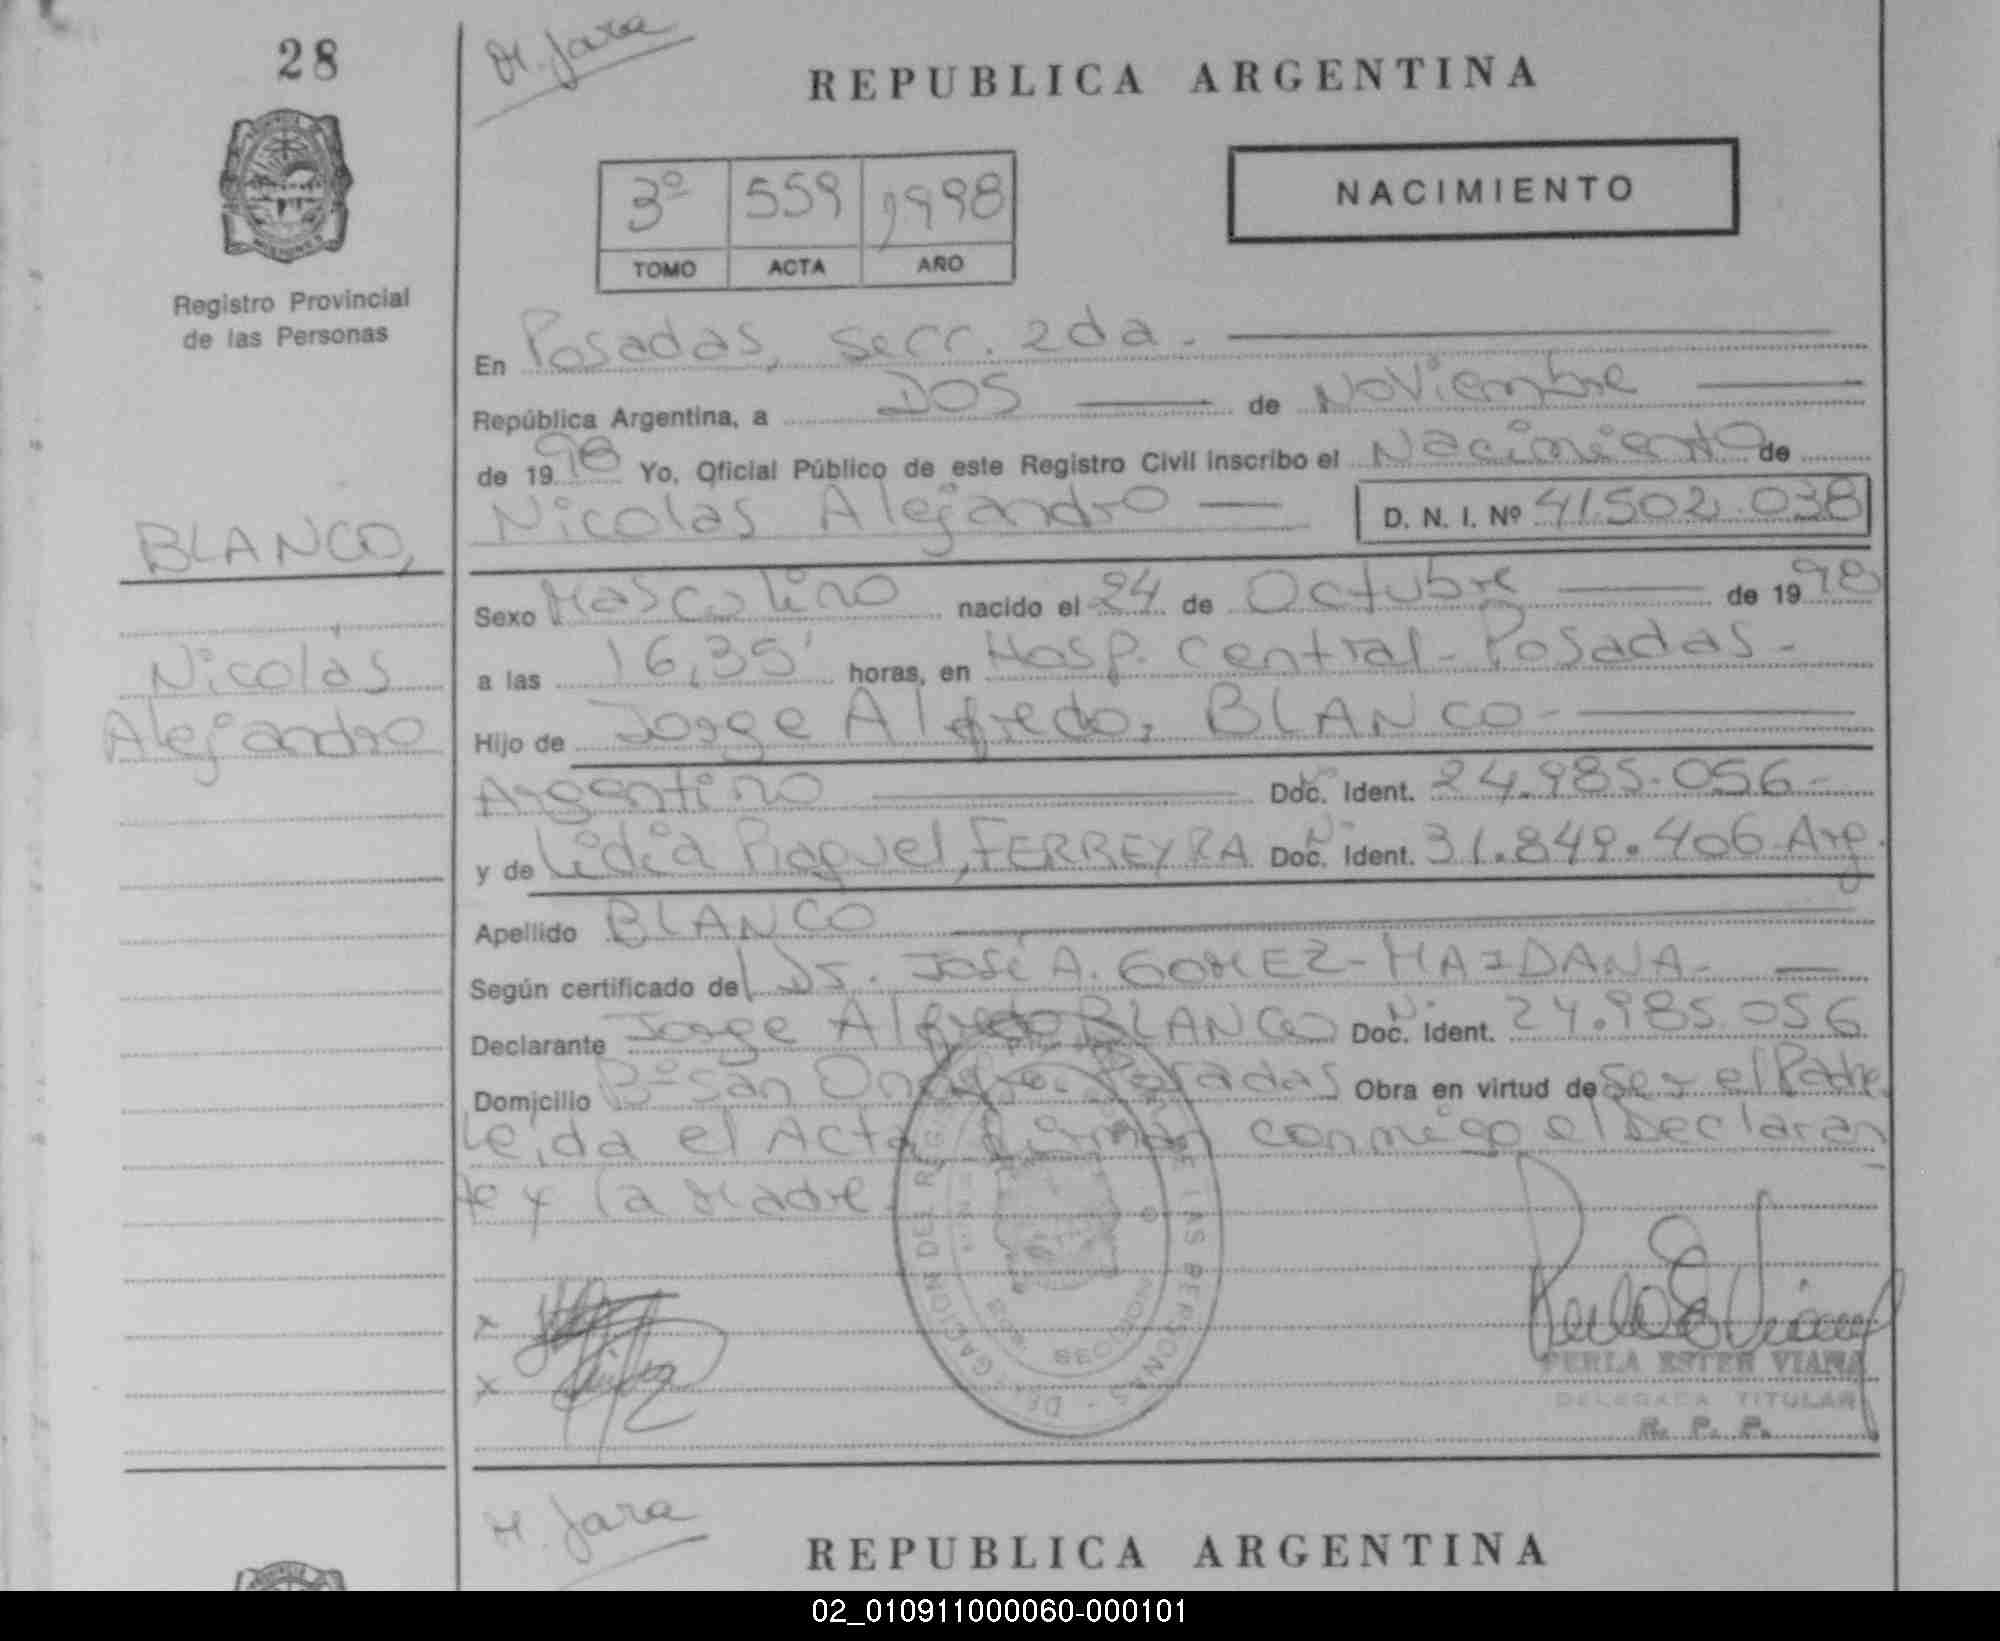 28
H. Jara
REPUBLICA ARGENTINA
3º 559 1998
TOMO ACTA AÑO
NACIMIENTO
Registro Provincial
de las Personas
En Posadas, secc. 2da.
República Argentina, a DOS de Noviembre
de 1998 Yo, Oficial Público de este Registro Civil inscribo el Nacimiento de
Nicolas Alejandro D. N. I. Nº 41.502.038
BLANCO,
Nicolás
Alejandro
Sexo Masculino nacido el 24 de Octubre de 1998
a las 16,35' horas, en Hosp. Central - Posadas -
Hijo de Jorge Alfredo, BLANCO -
Argentino Doc. Ident. Nº 24.985.056 -
y de Lidia Raquel, FERREYRA Doc. Ident. Nº 31.849.406 Arg.
Apellido BLANCO
Según certificado del Dr. José A. GOMEZ - MAIDANA -
Declarante Jorge Alfredo BLANCO Doc. Ident. Nº 24.985.056
Domicilio Bº San Onofre. Posadas Obra en virtud de Ser el Padre
Leida el Acta firman conmigo el Declaran
te y la Madre.
DELEGACION DEL REG DE LAS PERSONAS
POSADAS
MISIONES
x
x
PERLA ESTER VIANA
DELEGADA TITULAR
R. P. P.
H. Jara
REPUBLICA ARGENTINA
02_010911000060-000101